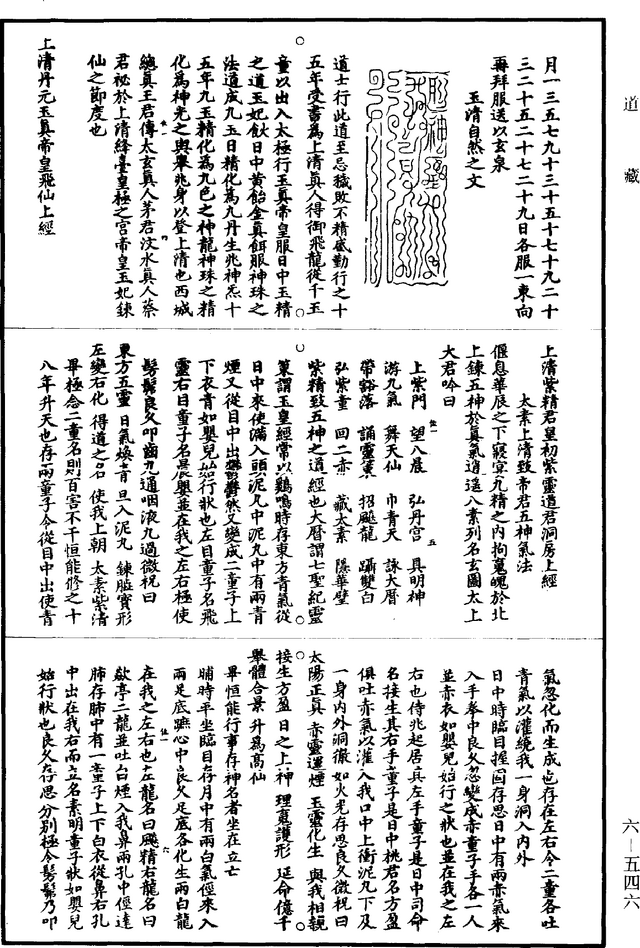 道藏
月一三五七九十三十五十七十九二十
三二十五二十七二十九日各服一東向
再拜服送以玄泉
玉清自然之文
道士行此道至忌穢敗不精感勤行之十
五年受書為上清真人得御飛龍從千玉
童以出入太極行玉真帝皇服日中玉精
之道玉妃飲日中黃飴金真餌服神珠之
法道成九玉日精化為九丹生兆神炁十
五年九玉精化為九色之神龍神珠之精
化為神光之與轝兆身以登上清也西城
總真王君傳太玄真人茅君汶水真人蔡
君祕於上清絳臺皇極之宮帝皇玉妃鍊
仙之節度也
上清丹元玉真帝皇飛仙上經
上清紫精君皇初紫靈道君洞房上經
太素上清致帝君五神氣法
偃息華辰之下寢宴九精之內拘魂魄於北
上鍊五神於真氣逍遙八素列名玄圖太上
大君吟曰
上紫門　望八晨　弘丹宮　真明神
游九氣　舞天仙　巾青天　詠大曆
帶豁落　誦靈篇　招飈龍　躡雙白
弘紫童　回二赤　藏太素　隱華壁
紫精致五神之道經也大曆謂七聖紀靈
篇謂玉皇經常以鷄鳴時存東方青氣從
日中來使滿入頭泥丸中泥丸中有兩青
煙又從目中出鬱鬱然又變成二童子上
下衣青如嬰兒始行狀也左目童子名飛
靈右目童子名晨嬰並在我之左右極使
髣髴良久叩齒九通咽液九過微祝曰
東方五靈　日氣煥青　旦入泥丸　鍊腦寶形
左變右化　得道之名　使我上朝　太素紫清
畢極念二童名則百害不干恒能修之十
八年升天也存兩童子令從目中出使青
氣忽化而生成也存在左右令二童各吐
青氣以灌繞我一身洞入內外
日中時臨目握固存思日中有兩赤氣來
入手拳中良久忽變成赤童子手各一人
並赤衣如嬰兒始行之狀也並在我之左
右也侍兆起居真左手童子是日中司命
名接生其右手童子是日中桃君名方盈
俱吐赤氣以灌入我口中上衝泥丸下及
一身內外洞徹如火光存思良久微祝曰
太陽正真　赤靈運煙　玉靈化生　與我相親
接生方盈　日之上神　理魂護形　延命億千
舉體合景　升為高仙
畢恒能行事存神名者坐在立亡
晡時平坐臨目存月中有兩白氣徑來入
兩足底蹠心中良久足底各化生兩白龍
在我之左右也左龍名曰飈精右龍名曰
歘亭二龍並吐白煙入我鼻兩孔中徑達
肺存肺中有一童子上下白衣從鼻右孔
中出在我右而立名素明童子狀如嬰兒
始行狀也良久存思分別極令髣髴乃叩
六一五四六